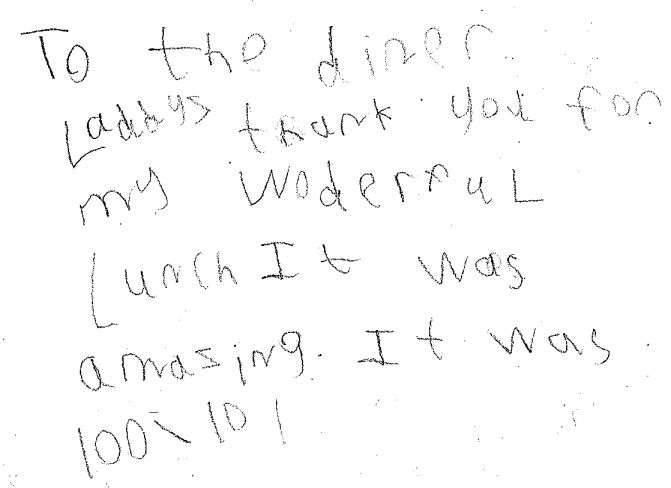 To the diner
Laddys thank you for
my Woderful
Lunch It was
amasing. It was
100\10!